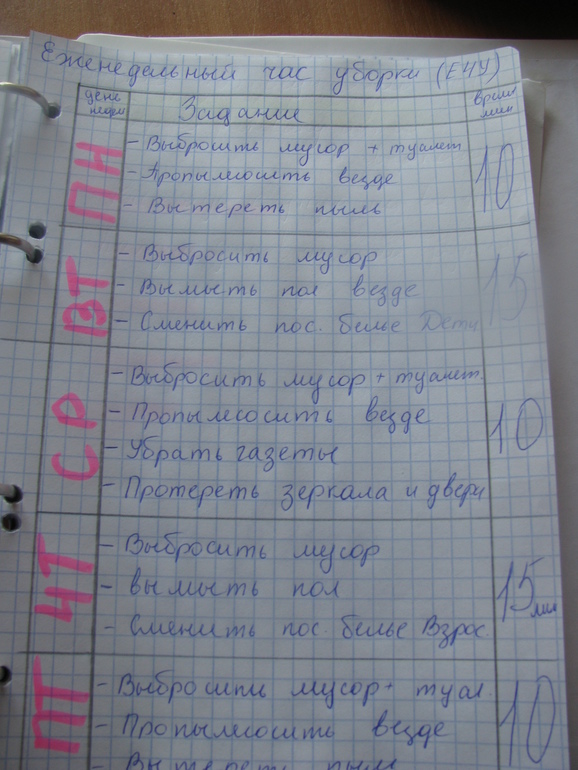 Еженедельный час уборки (ЕЧУ)
день недели Задание время мин
ПН
- Выбросить мусор + туалет
- Пропылесосить везде
- Вытереть пыль
10
ВТ
- Выбросить мусор
- Вымыть пол везде
- Сменить пос. белье Дети
15
СР
- Выбросить мусор + туалет.
- Пропылесосить везде
- Убрать газеты
- Протереть зеркала и двери
10
ЧТ
- Выбросить мусор
- вымыть пол
- Сменить пос. белье Взрос.
15 мин
ПТ
- Выбросить мусор + туал.
- Пропылесосить везде
- Вытереть пыль
10